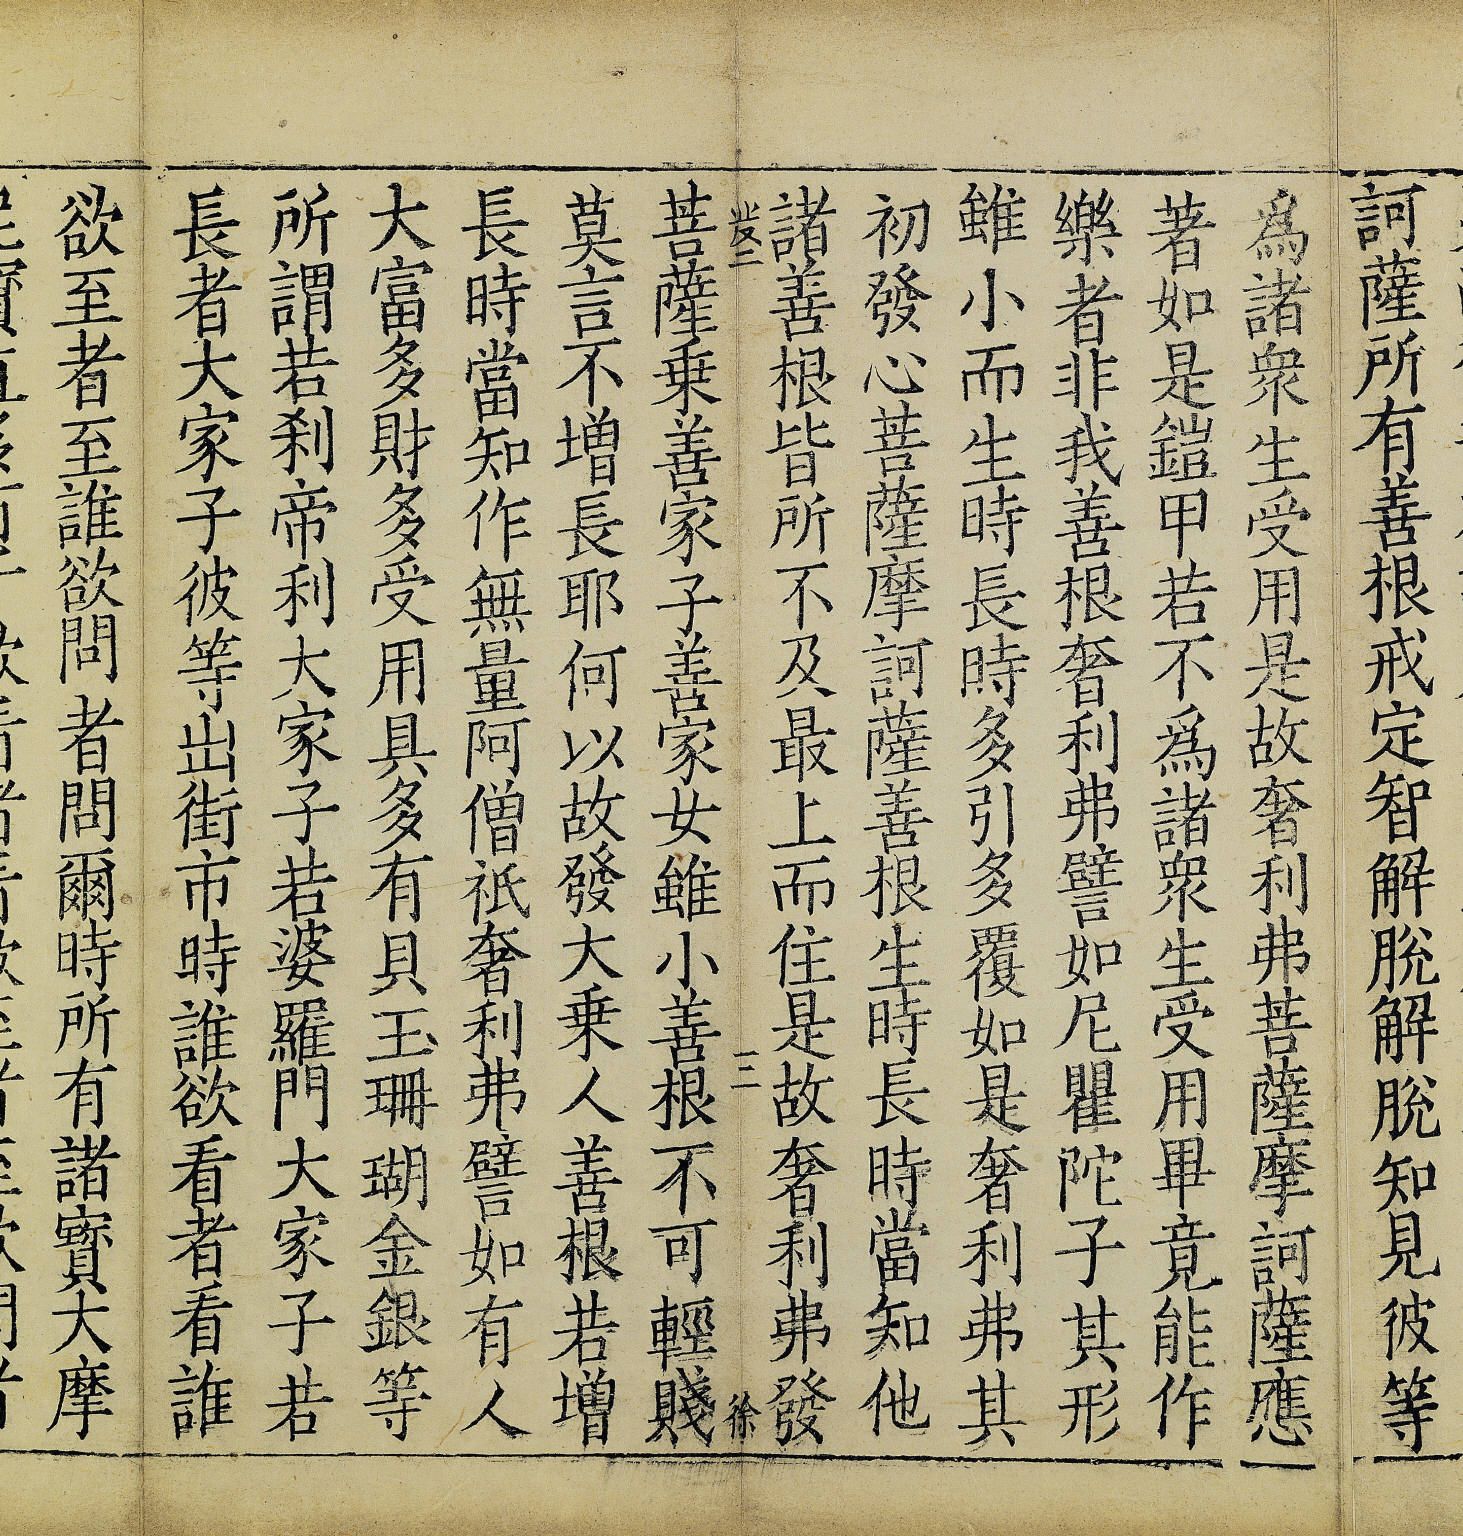 訶薩所有善根戒定智解脫解脫知見彼等
爲諸衆生受用是故奢利弗菩薩摩訶薩應
著如是鎧甲若不爲諸衆生受用畢竟能作
樂者非我善根奢利弗譬如尼瞿陀子其形
雖小而生時長時多引多覆如是奢利弗其
初發心菩薩摩訶薩善根生時長時當知他
諸善根皆所不及最上而住是故奢利弗發
三 徐
菩薩乗善家子善家女雖小善根不可輕賤
莫言不增長耶何以故發大乗人善根若增
長時當知作無量阿僧祇奢利弗譬如有人
大富多財多受用具多有貝玉珊瑚金銀等
所謂若刹帝利大家子若婆羅門大家子若
長者大家子彼等出街市時誰欲看者看誰
欲至者至誰欲問者問爾時所有諸寳大摩